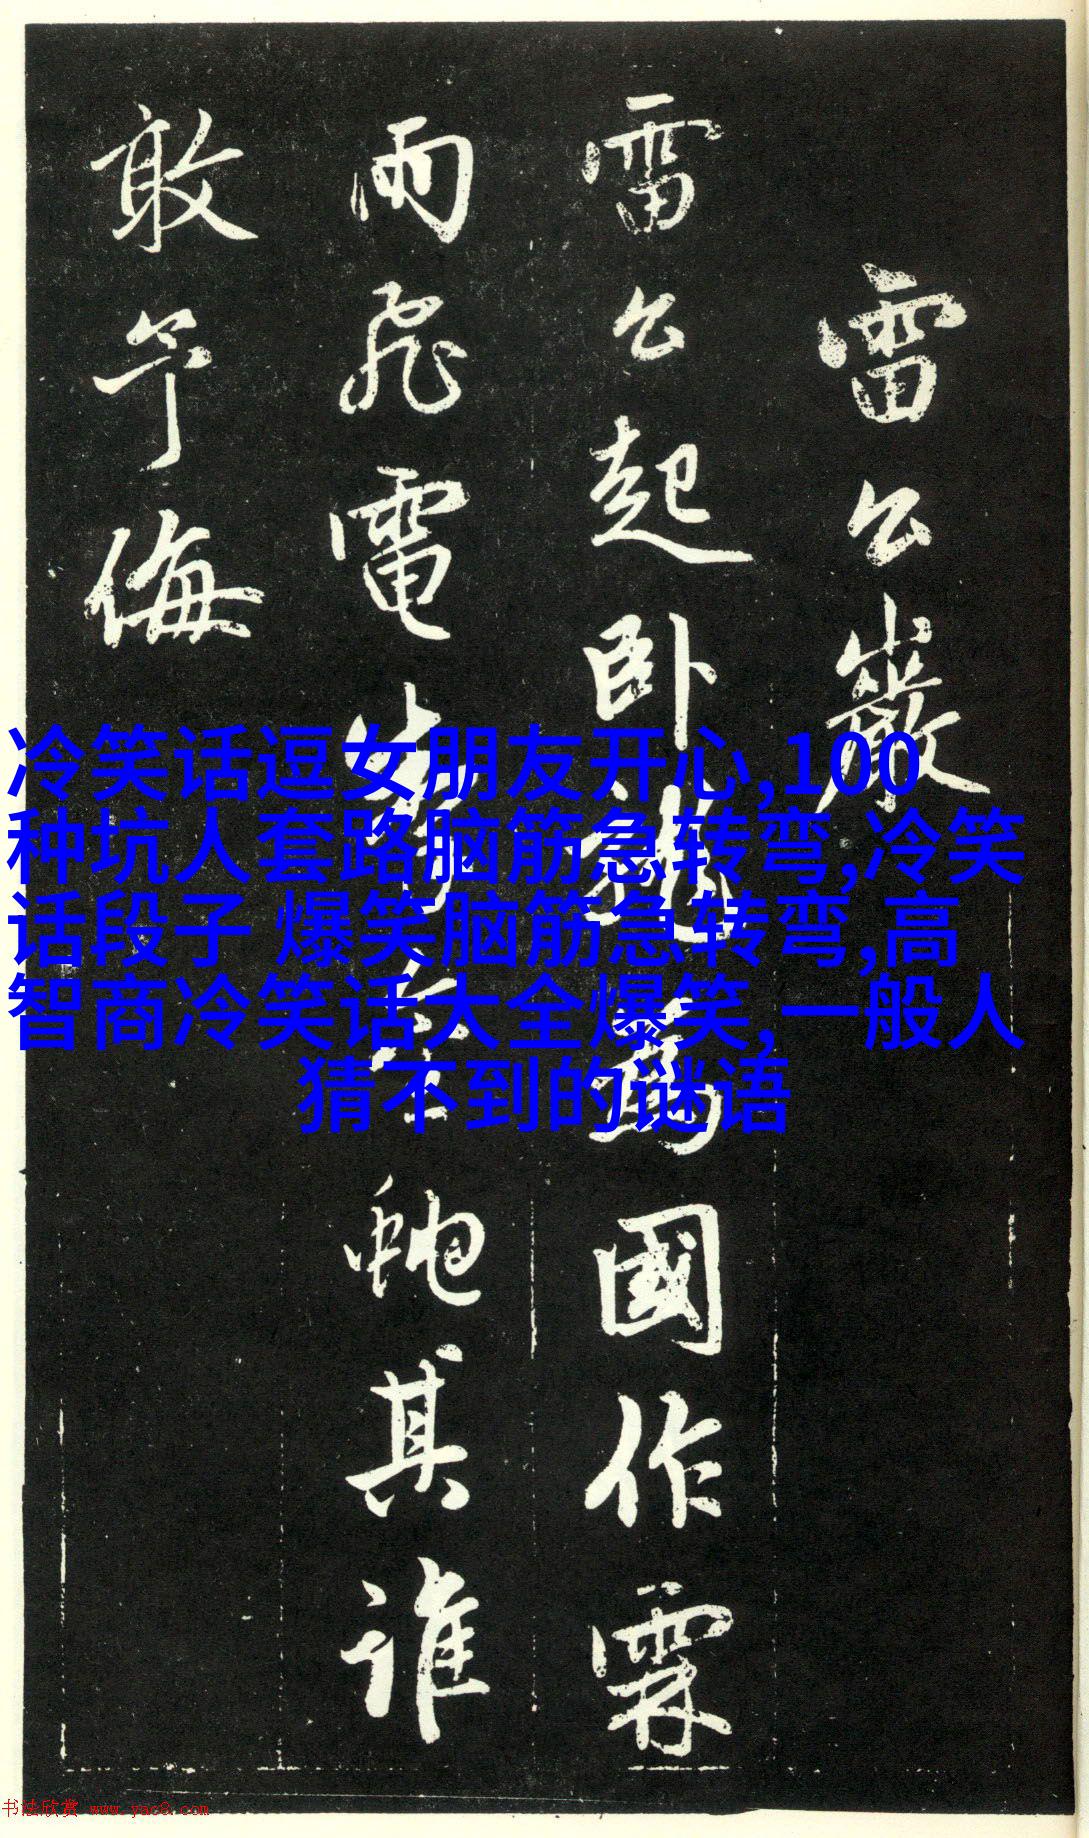 雷公巖
雷公起卧龍為國作霖
雨飛電掣金蛇其誰
敢予侮
冷笑话逗女朋友开心,100
种坑人套路脑筋急转弯,冷笑
话段子 爆笑脑筋急转弯,高
智商冷笑话大全爆笑,一般人
猜不到的谜语
书法欣赏 www.yac8.com